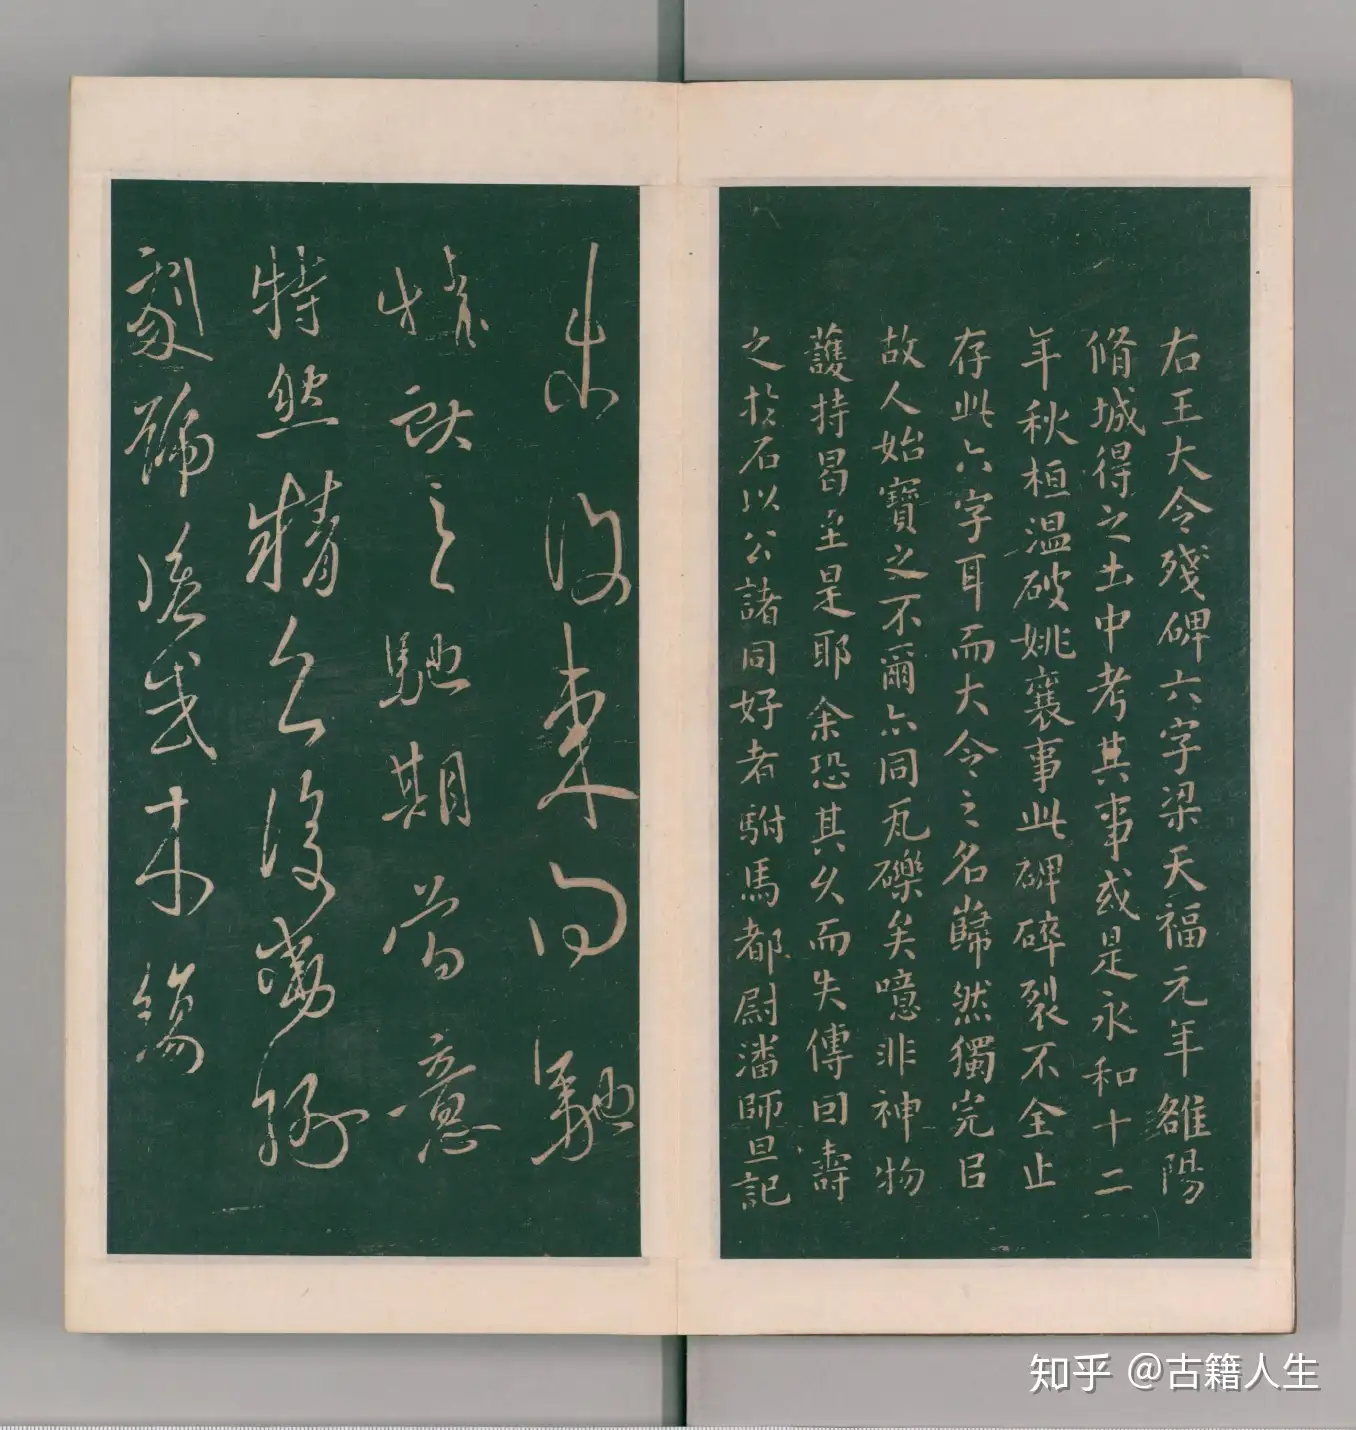 右王大令殘碑六字梁天福元年雒陽
脩城得之土中考其事或是永和十二
年秋桓温破姚襄事此碑碎裂不全止
存此六字耳而大令之名巋然獨完㠯
故人始寶之不爾亦同瓦礫矣噫非神物
護持曷至是耶余恐其久而失傳因壽
之於石以公諸同好者駙馬都尉潘師旦記
東向馳
獻之馳期當意
特然精
未
知乎 @古籍人生